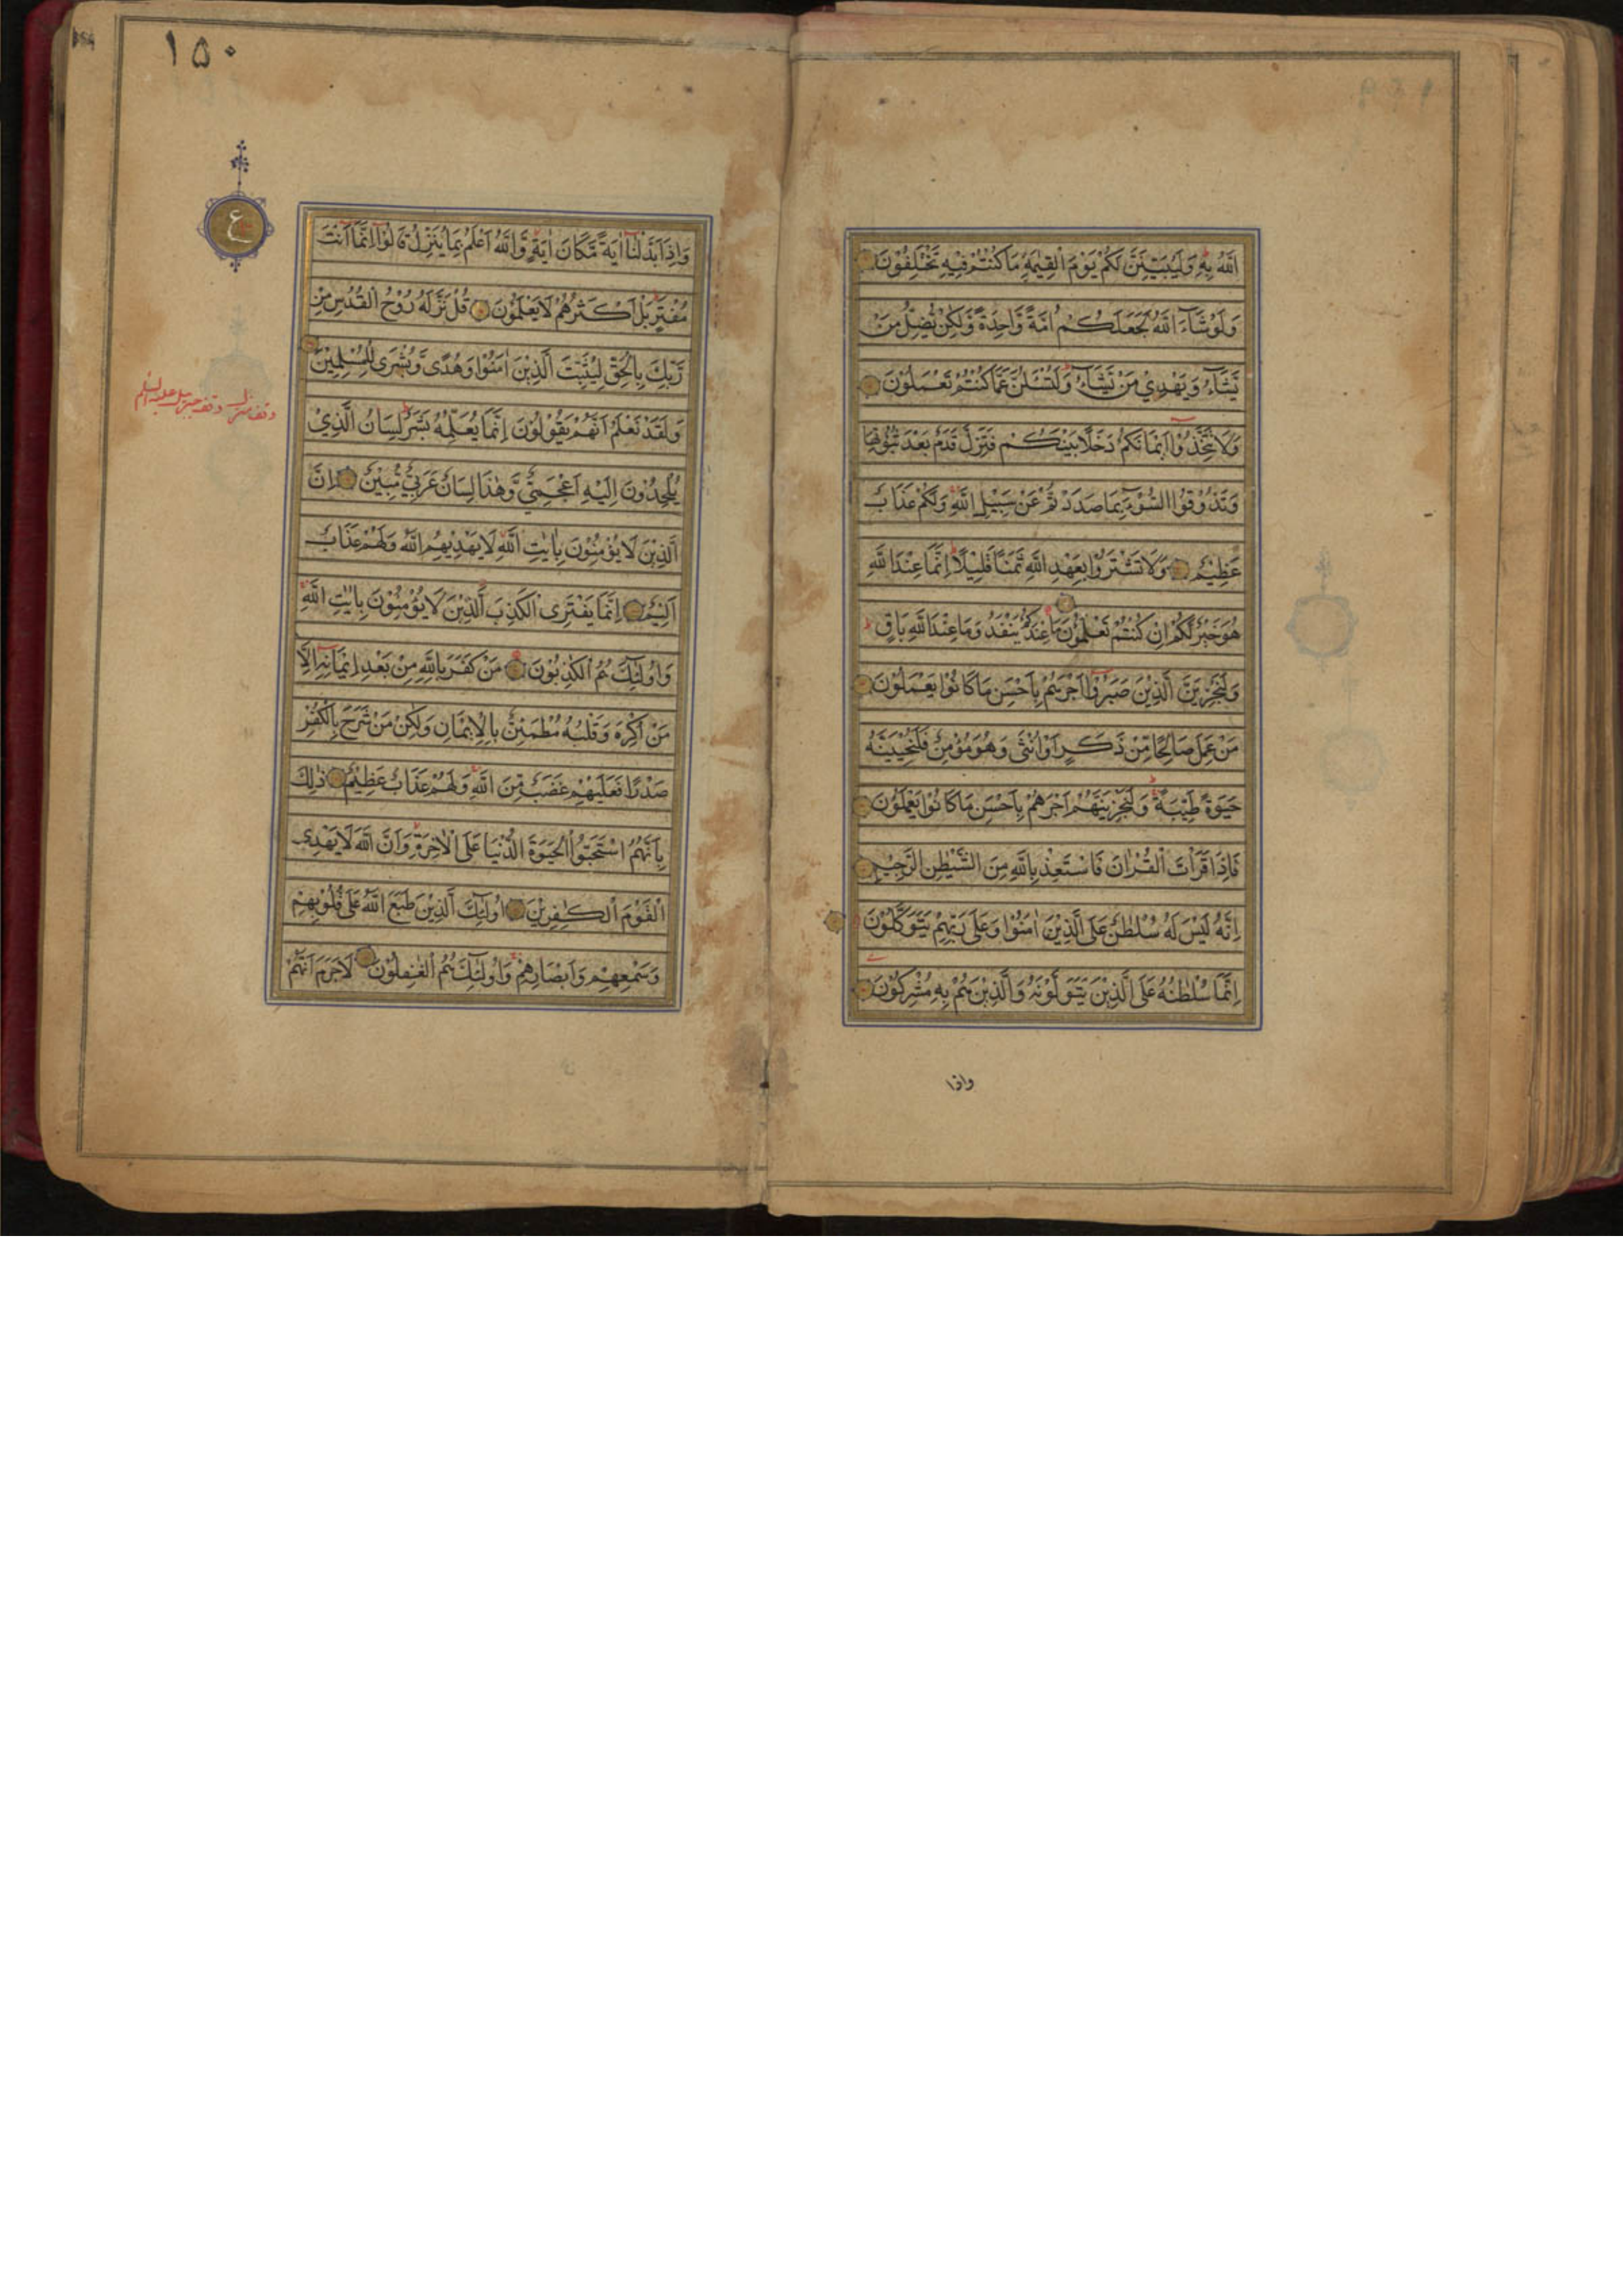 اللّٰهُ بِهٖ وَلَيُبَيِّنَنَّ لَكُمْ يَوْمَ الْقِيٰمَةِ مَا كُنْتُمْ فِيْهِ تَخْتَلِفُوْنَ
وَلَوْ شَآءَ اللّٰهُ لَجَعَلَكُمْ اُمَّةً وَّاحِدَةً وَّلٰكِنْ يُّضِلُّ مَنْ
يَّشَآءُ وَيَهْدِيْ مَنْ يَّشَآءُ وَلَتُسْـَٔلُنَّ عَمَّا كُنْتُمْ تَعْمَلُوْنَ
وَلَا تَتَّخِذُوْا اَيْمَانَكُمْ دَخَلًا بَيْنَكُمْ فَتَزِلَّ قَدَمٌ بَعْدَ ثُبُوْتِهَا
وَتَذُوْقُوا السُّوْٓءَ بِمَا صَدَدْتُّمْ عَنْ سَبِيْلِ اللّٰهِ وَلَكُمْ عَذَابٌ
عَظِيْمٌ وَلَا تَشْتَرُوْا بِعَهْدِ اللّٰهِ ثَمَنًا قَلِيْلًا اِنَّمَا عِنْدَ اللّٰهِ
هُوَ خَيْرٌ لَّكُمْ اِنْ كُنْتُمْ تَعْلَمُوْنَ مَا عِنْدَكُمْ يَنْفَدُ وَمَا عِنْدَ اللّٰهِ بَاقٍ
وَلَنَجْزِيَنَّ الَّذِيْنَ صَبَرُوْا اَجْرَهُمْ بِاَحْسَنِ مَا كَانُوْا يَعْمَلُوْنَ
مَنْ عَمِلَ صَالِحًا مِّنْ ذَكَرٍ اَوْ اُنْثٰى وَهُوَ مُؤْمِنٌ فَلَنُحْيِيَنَّهٗ
حَيٰوةً طَيِّبَةً وَلَنَجْزِيَنَّهُمْ اَجْرَهُمْ بِاَحْسَنِ مَا كَانُوْا يَعْمَلُوْنَ
فَاِذَا قَرَاْتَ الْقُرْاٰنَ فَاسْتَعِذْ بِاللّٰهِ مِنَ الشَّيْطٰنِ الرَّجِيْمِ
اِنَّهٗ لَيْسَ لَهٗ سُلْطٰنٌ عَلَى الَّذِيْنَ اٰمَنُوْا وَعَلٰى رَبِّهِمْ يَتَوَكَّلُوْنَ
اِنَّمَا سُلْطٰنُهٗ عَلَى الَّذِيْنَ يَتَوَلَّوْنَهٗ وَالَّذِيْنَ هُمْ بِهٖ مُشْرِكُوْنَ
واذا
١٥٠
ع
وَاِذَا بَدَّلْنَا اٰيَةً مَّكَانَ اٰيَةٍ وَّاللّٰهُ اَعْلَمُ بِمَا يُنَزِّلُ قَالُوْا اِنَّمَا اَنْتَ
مُفْتَرٍ بَلْ اَكْثَرُهُمْ لَا يَعْلَمُوْنَ قُلْ نَزَّلَهٗ رُوْحُ الْقُدُسِ مِنْ
رَّبِّكَ بِالْحَقِّ لِيُثَبِّتَ الَّذِيْنَ اٰمَنُوْا وَهُدًى وَّبُشْرٰى لِلْمُسْلِمِيْنَ
وقف منزل وقف جبريل عليه السلم
وَلَقَدْ نَعْلَمُ اَنَّهُمْ يَقُوْلُوْنَ اِنَّمَا يُعَلِّمُهٗ بَشَرٌ لِسَانُ الَّذِيْ
يُلْحِدُوْنَ اِلَيْهِ اَعْجَمِيٌّ وَّهٰذَا لِسَانٌ عَرَبِيٌّ مُّبِيْنٌ اِنَّ
الَّذِيْنَ لَا يُؤْمِنُوْنَ بِاٰيٰتِ اللّٰهِ لَا يَهْدِيْهِمُ اللّٰهُ وَلَهُمْ عَذَابٌ
اَلِيْمٌ اِنَّمَا يَفْتَرِى الْكَذِبَ الَّذِيْنَ لَا يُؤْمِنُوْنَ بِاٰيٰتِ اللّٰهِ
وَاُولٰٓئِكَ هُمُ الْكٰذِبُوْنَ مَنْ كَفَرَ بِاللّٰهِ مِنْ بَعْدِ اِيْمَانِهٖ اِلَّا
مَنْ اُكْرِهَ وَقَلْبُهٗ مُطْمَئِنٌّ بِالْاِيْمَانِ وَلٰكِنْ مَنْ شَرَحَ بِالْكُفْرِ
صَدْرًا فَعَلَيْهِمْ غَضَبٌ مِّنَ اللّٰهِ وَلَهُمْ عَذَابٌ عَظِيْمٌ ذٰلِكَ
بِاَنَّهُمُ اسْتَحَبُّوا الْحَيٰوةَ الدُّنْيَا عَلَى الْاٰخِرَةِ وَاَنَّ اللّٰهَ لَا يَهْدِى
الْقَوْمَ الْكٰفِرِيْنَ اُولٰٓئِكَ الَّذِيْنَ طَبَعَ اللّٰهُ عَلٰى قُلُوْبِهِمْ
وَسَمْعِهِمْ وَاَبْصَارِهِمْ وَاُولٰٓئِكَ هُمُ الْغٰفِلُوْنَ لَا جَرَمَ اَنَّهُمْ